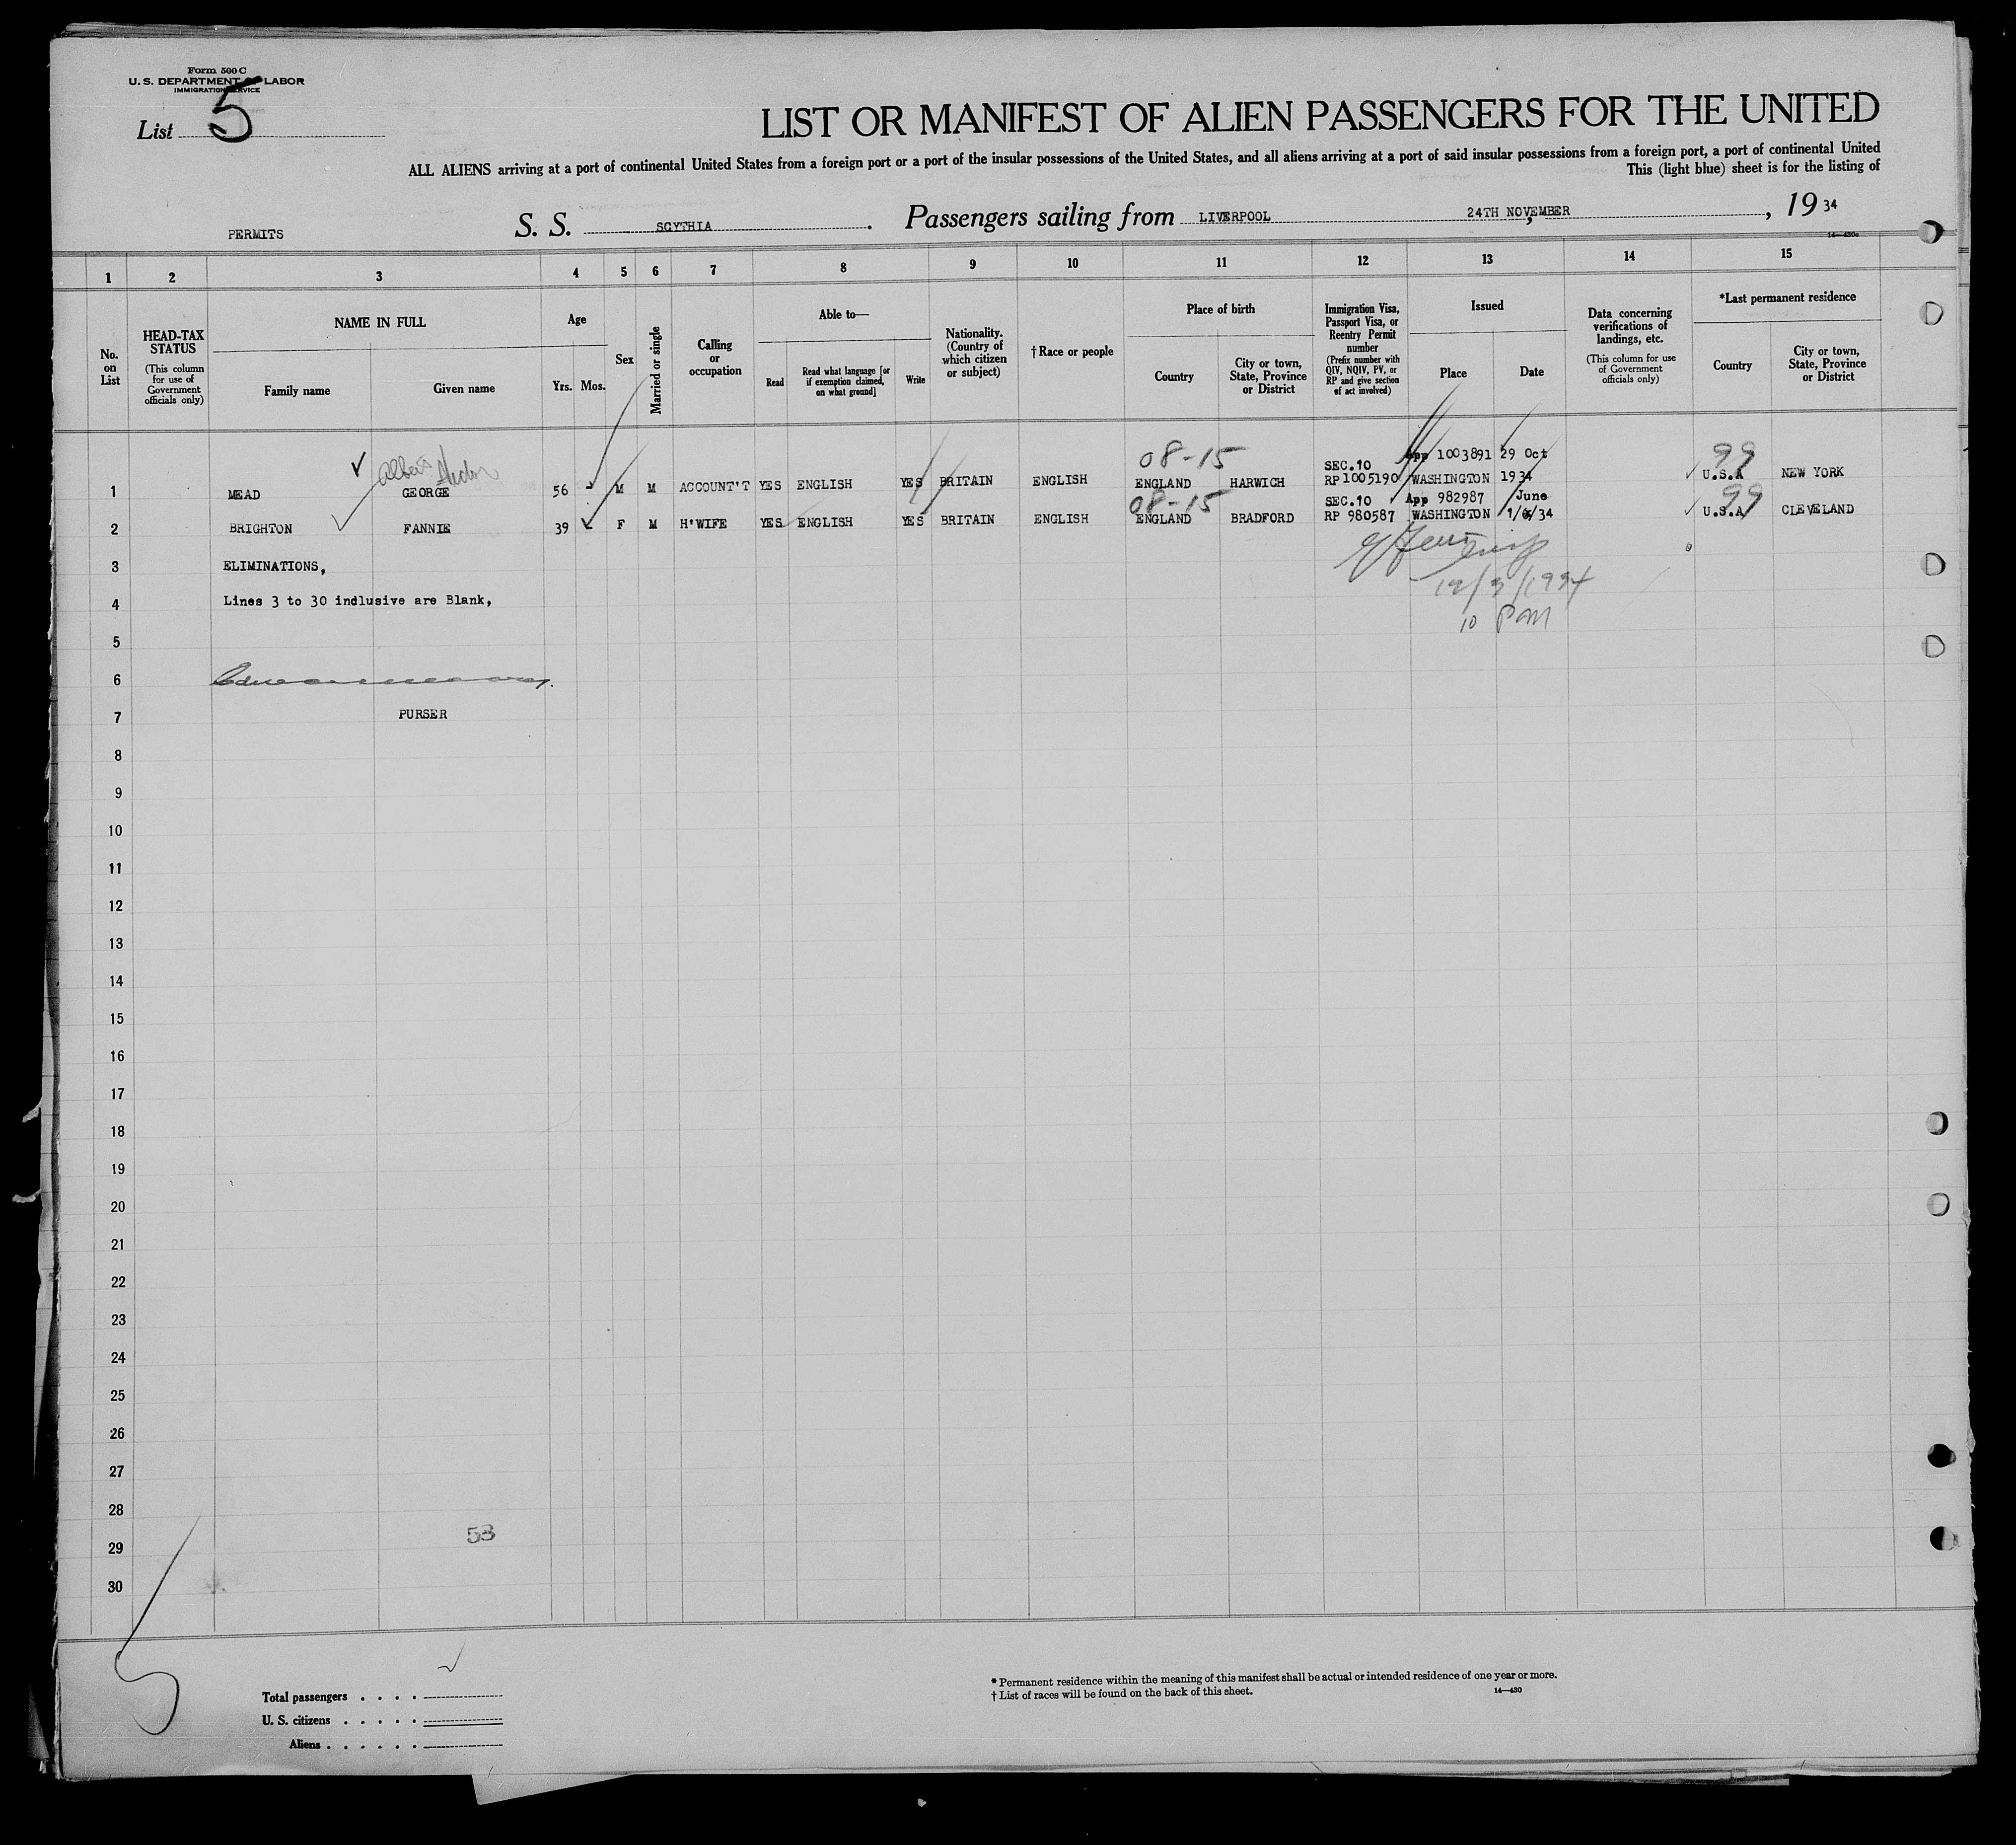 Form 500 C
U. S. DEPARTMENT OF LABOR
IMMIGRATION SERVICE
List 5
LIST OR MANIFEST OF ALIEN PASSENGERS FOR THE UNITED
ALL ALIENS arriving at a port of continental United States from a foreign port or a port of the insular possessions of the United States, and all aliens arriving at a port of said insular possessions from a foreign port, a port of continental United
This (light blue) sheet is for the listing of
PERMITS S. S. SCYTHIA. Passengers sailing from LIVERPOOL 24TH NOVEMBER, 1934
14—430c
1 2 3 4 5 6 7 8 9 10 11 12 13 14 15
No. on List
HEAD-TAX STATUS
(This column for use of Government officials only)
NAME IN FULL
Family name Given name
Age
Yrs. Mos.
Sex
Married or single
Calling or occupation
Able to—
Read Read what language [or if exemption claimed, on what ground] Write
Nationality. (Country of which citizen or subject)
†Race or people
Place of birth
Country City or town, State, Province or District
Immigration Visa, Passport Visa, or Reentry Permit number
(Prefix number with QIV, NQIV, PV, or RP and give section of act involved)
Issued
Place Date
Data concerning verifications of landings, etc.
(This column for use of Government officials only)
*Last permanent residence
Country City or town, State, Province or District
Albert
08-15 SEC.10 App 1003891 29 Oct 99
1 MEAD GEORGE 56 M M ACCOUNT'T YES ENGLISH YES BRITAIN ENGLISH ENGLAND HARWICH RP1005190 WASHINGTON 1934 U.S.A NEW YORK
08-15 SEC.10 App 982987 June 99
2 BRIGHTON FANNIE 39 F M H'WIFE YES ENGLISH YES BRITAIN ENGLISH ENGLAND BRADFORD RP 980587 WASHINGTON 1/6/34 U.S.A CLEVELAND
3 ELIMINATIONS,
12/3/1934
4 Lines 3 to 30 indlusive are Blank,
10 PM
5
6
7 PURSER
8
9
10
11
12
13
14
15
16
17
18
19
20
21
22
23
24
25
26
27
28
53
29
30
5
Total passengers
U. S. citizens
Aliens
* Permanent residence within the meaning of this manifest shall be actual or intended residence of one year or more.
† List of races will be found on the back of this sheet.
14—430